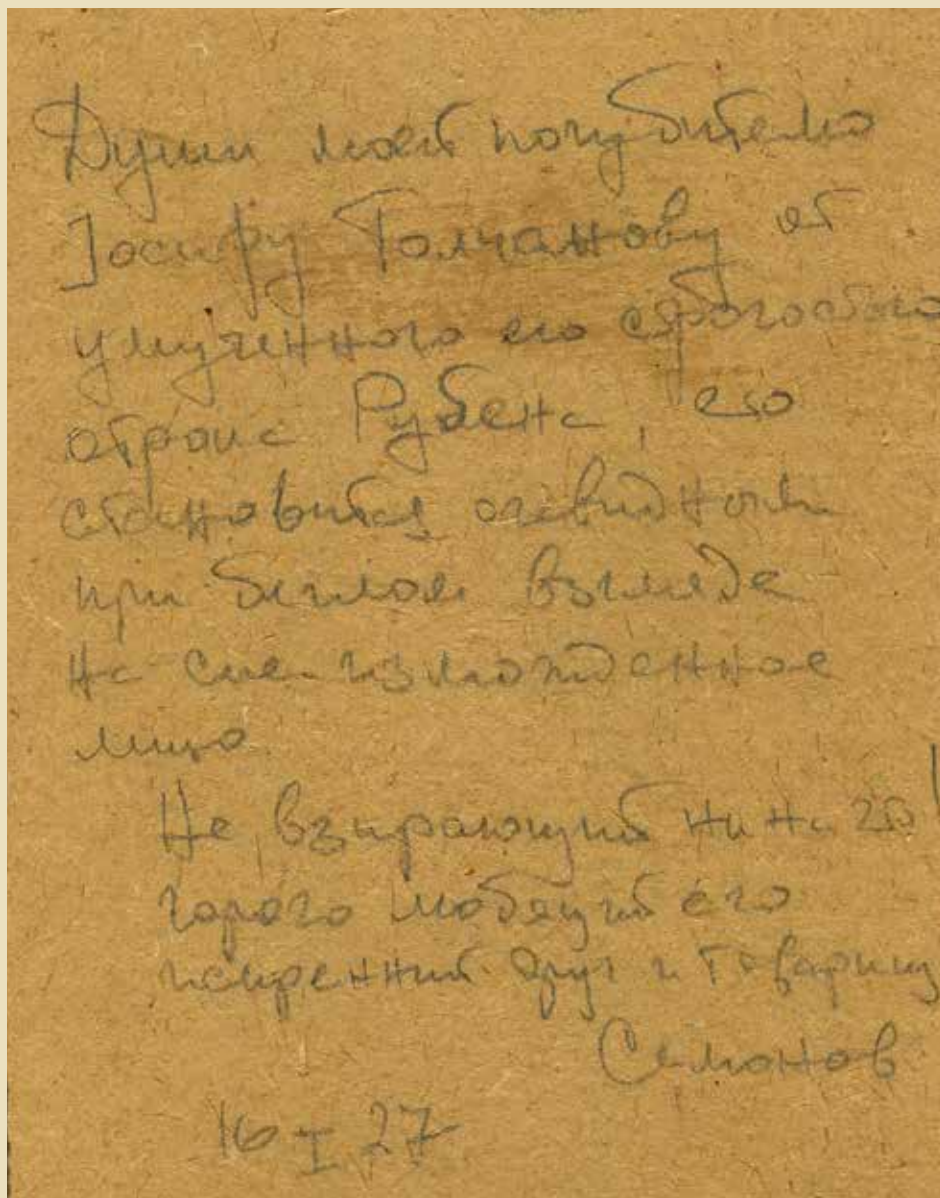 Души моей погубителю
Jосифу Толчанову от
умученного его строгостью
отрока Рубена, что
становится очевидным
при беглом взгляде
на сие изможденное
лицо.
Не взирающий ни на что
горячо любящий его
искренний друг и товарищ
Симонов
16 I 27